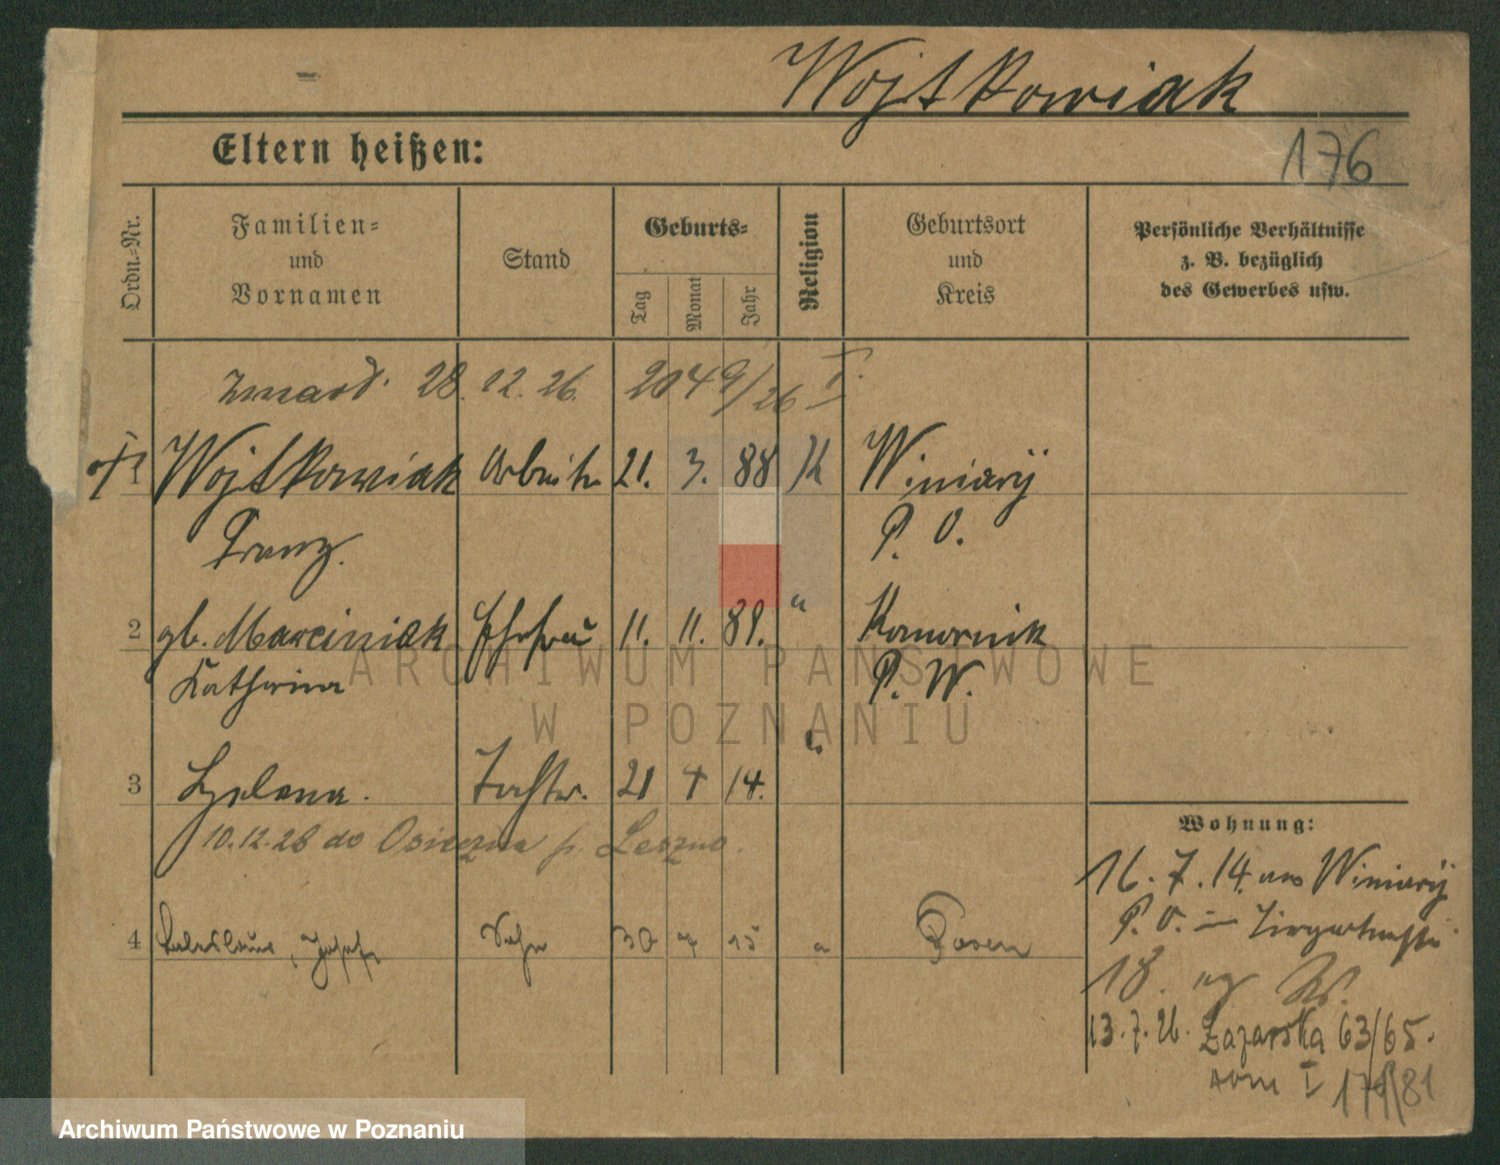 Wojtkowiak
Eltern heißen:
176
Ordn.-Nr.
Familien- und Vornamen
Stand
Geburts-
Tag
Monat
Jahr
Religion
Geburtsort und Kreis
Persönliche Verhältnisse z. B. bezüglich des Gewerbes usw.
zmarł. 28. 12. 26. 2049/26 I.
1 Wojtkowiak Arbeiter 21. 3. 88 K Winiary
Franz. P. O.
2 gb. Marciniak Ehefrau 11. 11. 89. " Komornik
Katharina P. W.
3 Helena. Tochter. 21 4 14. "
10.12.28 do Osieczna p. Leszno.
4 Ladislaus, Josef Sohn 30 7 15 " Posen
Wohnung:
16. 7. 14. aus Winiary
P. O. –
18. W.
13. 7. 26. Zagórska 63/65.
I
ARCHIWUM PAŃSTWOWE
W POZNANIU
Archiwum Państwowe w Poznaniu